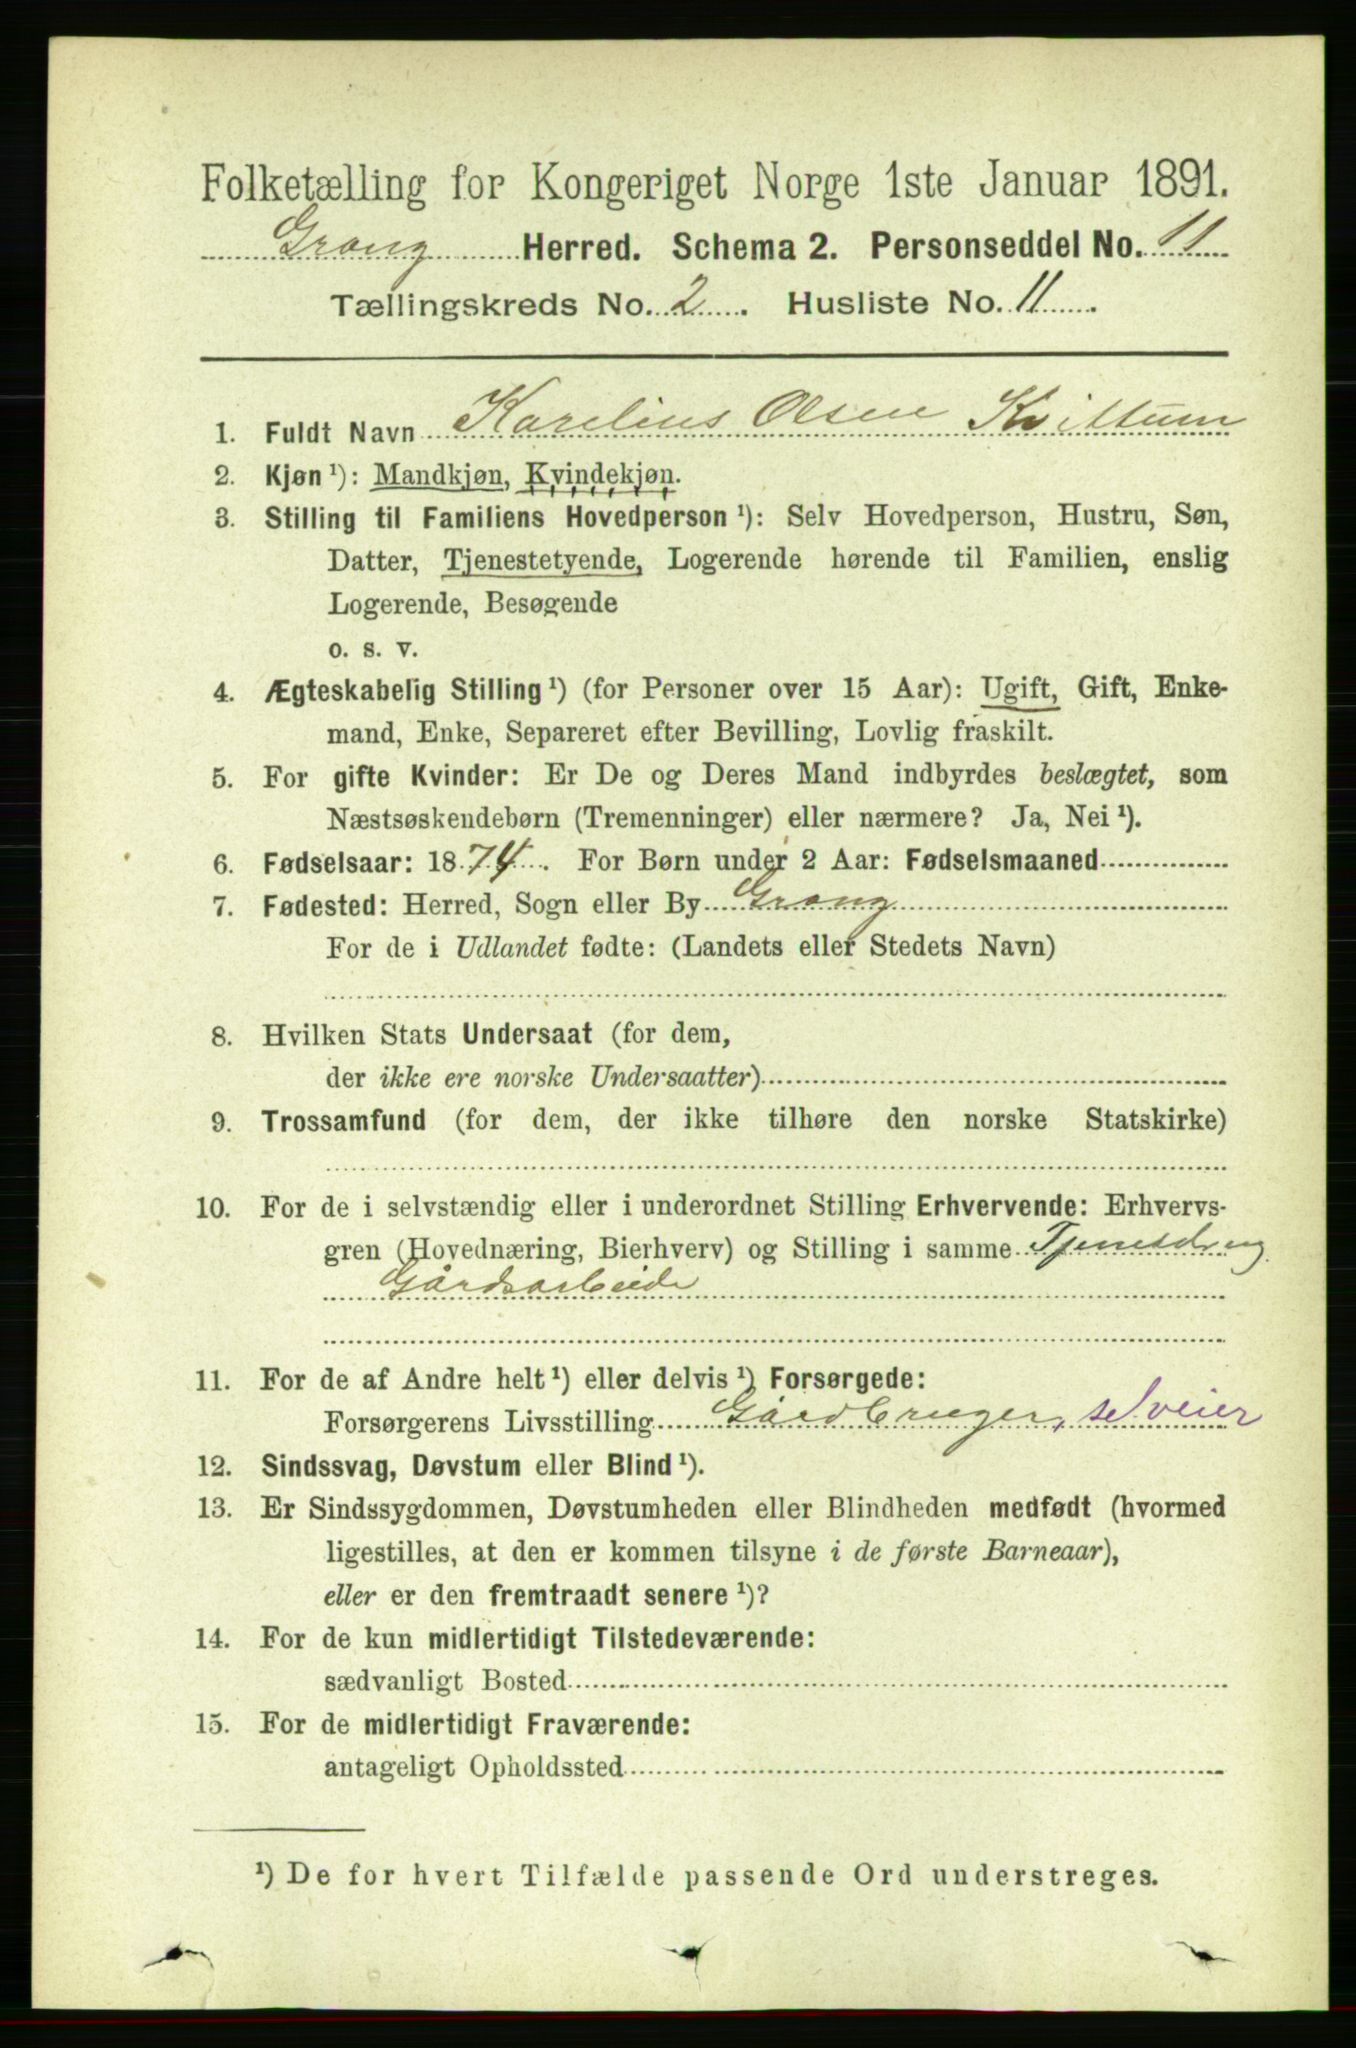 Folketælling for Kongeriget Norge 1ste Januar 1891.
Grong Herred. Schema 2. Personseddel No. 11
Tællingskreds No. 2. Husliste No. 11.
1. Fuldt Navn Karelius Olsen Kvittum
2. Kjøn ¹): Mandkjøn, Kvindekjøn.
3. Stilling til Familiens Hovedperson ¹): Selv Hovedperson, Hustru, Søn,
Datter, Tjenestetyende, Logerende hørende til Familien, enslig
Logerende, Besøgende
o. s. v.
4. Ægteskabelig Stilling ¹) (for Personer over 15 Aar): Ugift, Gift, Enke-
mand, Enke, Separeret efter Bevilling, Lovlig fraskilt.
5. For gifte Kvinder: Er De og Deres Mand indbyrdes beslægtet, som
Næstsøskendebørn (Tremenninger) eller nærmere? Ja, Nei ¹).
6. Fødselsaar: 1874. For Børn under 2 Aar: Fødselsmaaned
7. Fødested: Herred, Sogn eller By Grong
For de i Udlandet fødte: (Landets eller Stedets Navn)
8. Hvilken Stats Undersaat (for dem,
der ikke ere norske Undersaatter)
9. Trossamfund (for dem, der ikke tilhøre den norske Statskirke)
10. For de i selvstændig eller i underordnet Stilling Erhvervende: Erhvervs-
gren (Hovednæring, Bierhverv) og Stilling i samme Tjenestdreng
Gårdsarbeide
11. For de af Andre helt ¹) eller delvis ¹) Forsørgede:
Forsørgerens Livsstilling Gårdbruger, selveier
12. Sindssvag, Døvstum eller Blind ¹).
13. Er Sindssygdommen, Døvstumheden eller Blindheden medfødt (hvormed
ligestilles, at den er kommen tilsyne i de første Barneaar),
eller er den fremtraadt senere ¹)?
14. For de kun midlertidigt Tilstedeværende:
sædvanligt Bosted
15. For de midlertidigt Fraværende:
antageligt Opholdssted
¹) De for hvert Tilfælde passende Ord understreges.